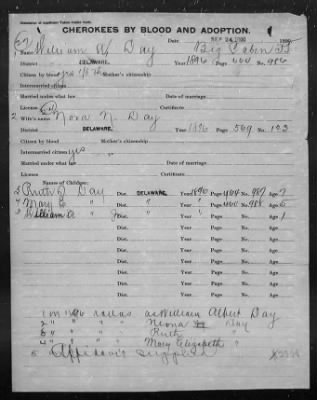 CHEROKEES BY BLOOD AND ADOPTION.
Date SEP 24 1900 189
William A Day Big Cabin I.T.
District DELAWARE. Year 1896 Page No. 986
Citizen by blood yes 1/8th Mother's citizenship
Intermarried citizen
Married under what law Date of marriage.
License Certificate
2 Wife's name Nora N. Day
District DELAWARE. Year 1896 Page 569 No. 123
Citizen by blood Mother's citizenship
Intermarried citizen yes
Married under what law Date of marriage.
License Certificate
Names of Children:
3 Ruth D Day Dist. DELAWARE. Year 1896 Page 464 No. 987 Age 7
4 Mary E " Dist. " Year " Page No. 988 Age 5
5 William A. " Dist. Year Page No. Age 1
Dist. Year Page No. Age
Dist. Year Page No. Age
Dist. Year Page No. Age
Dist. Year Page No. Age
Dist. Year Page No. Age
Dist. Year Page No. Age
1 on 1896 roll as William Albert Day
2 " " " " Neona Day
3 " " " " Ruth "
4 " " " " Mary Elizabeth "
5 Affidavit supplied